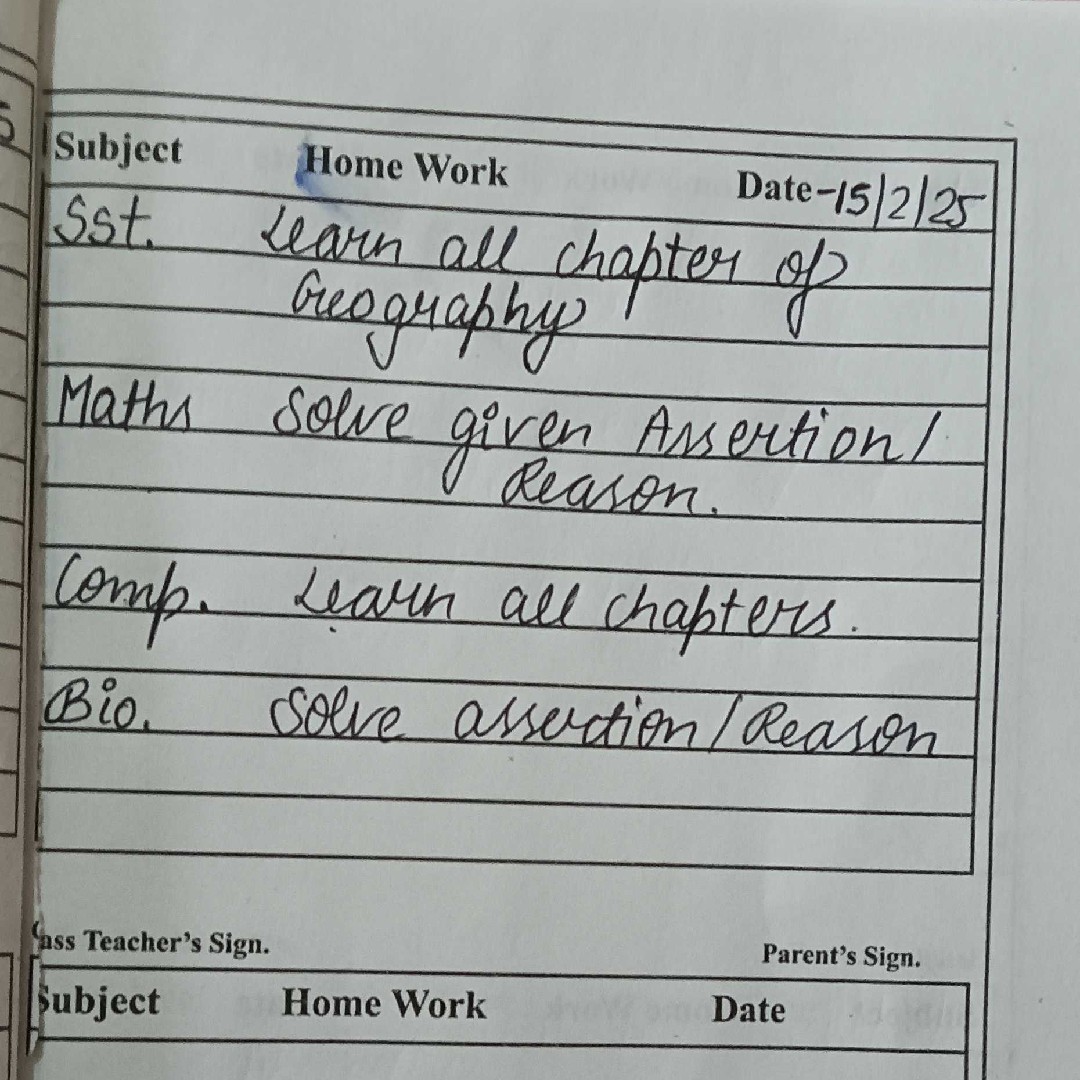 Subject Home Work Date-15/2/25
Sst. Learn all chapter of
Geography
Maths Solve given Assertion/
Reason.
Comp. Learn all chapters.
Bio. Solve assertion/Reason
ass Teacher's Sign. Parent's Sign.
Subject Home Work Date